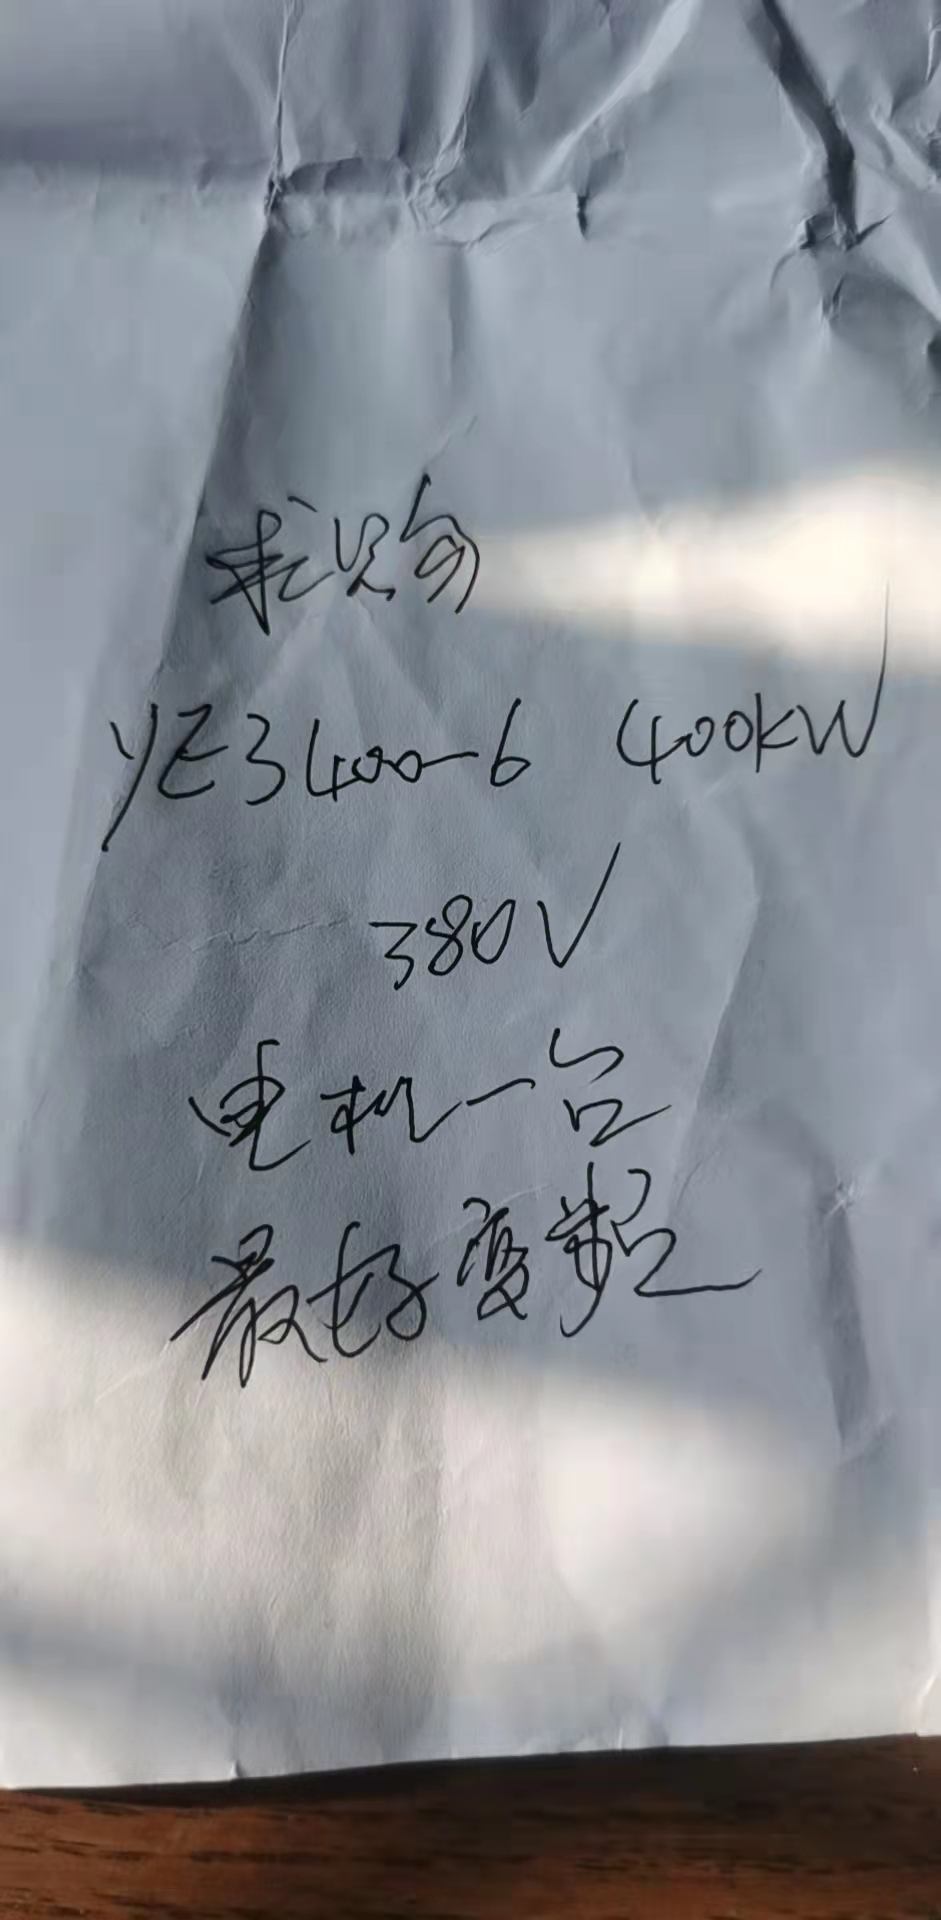 求购
YE3 400-6 400kW
380V
电机一台
最好变频